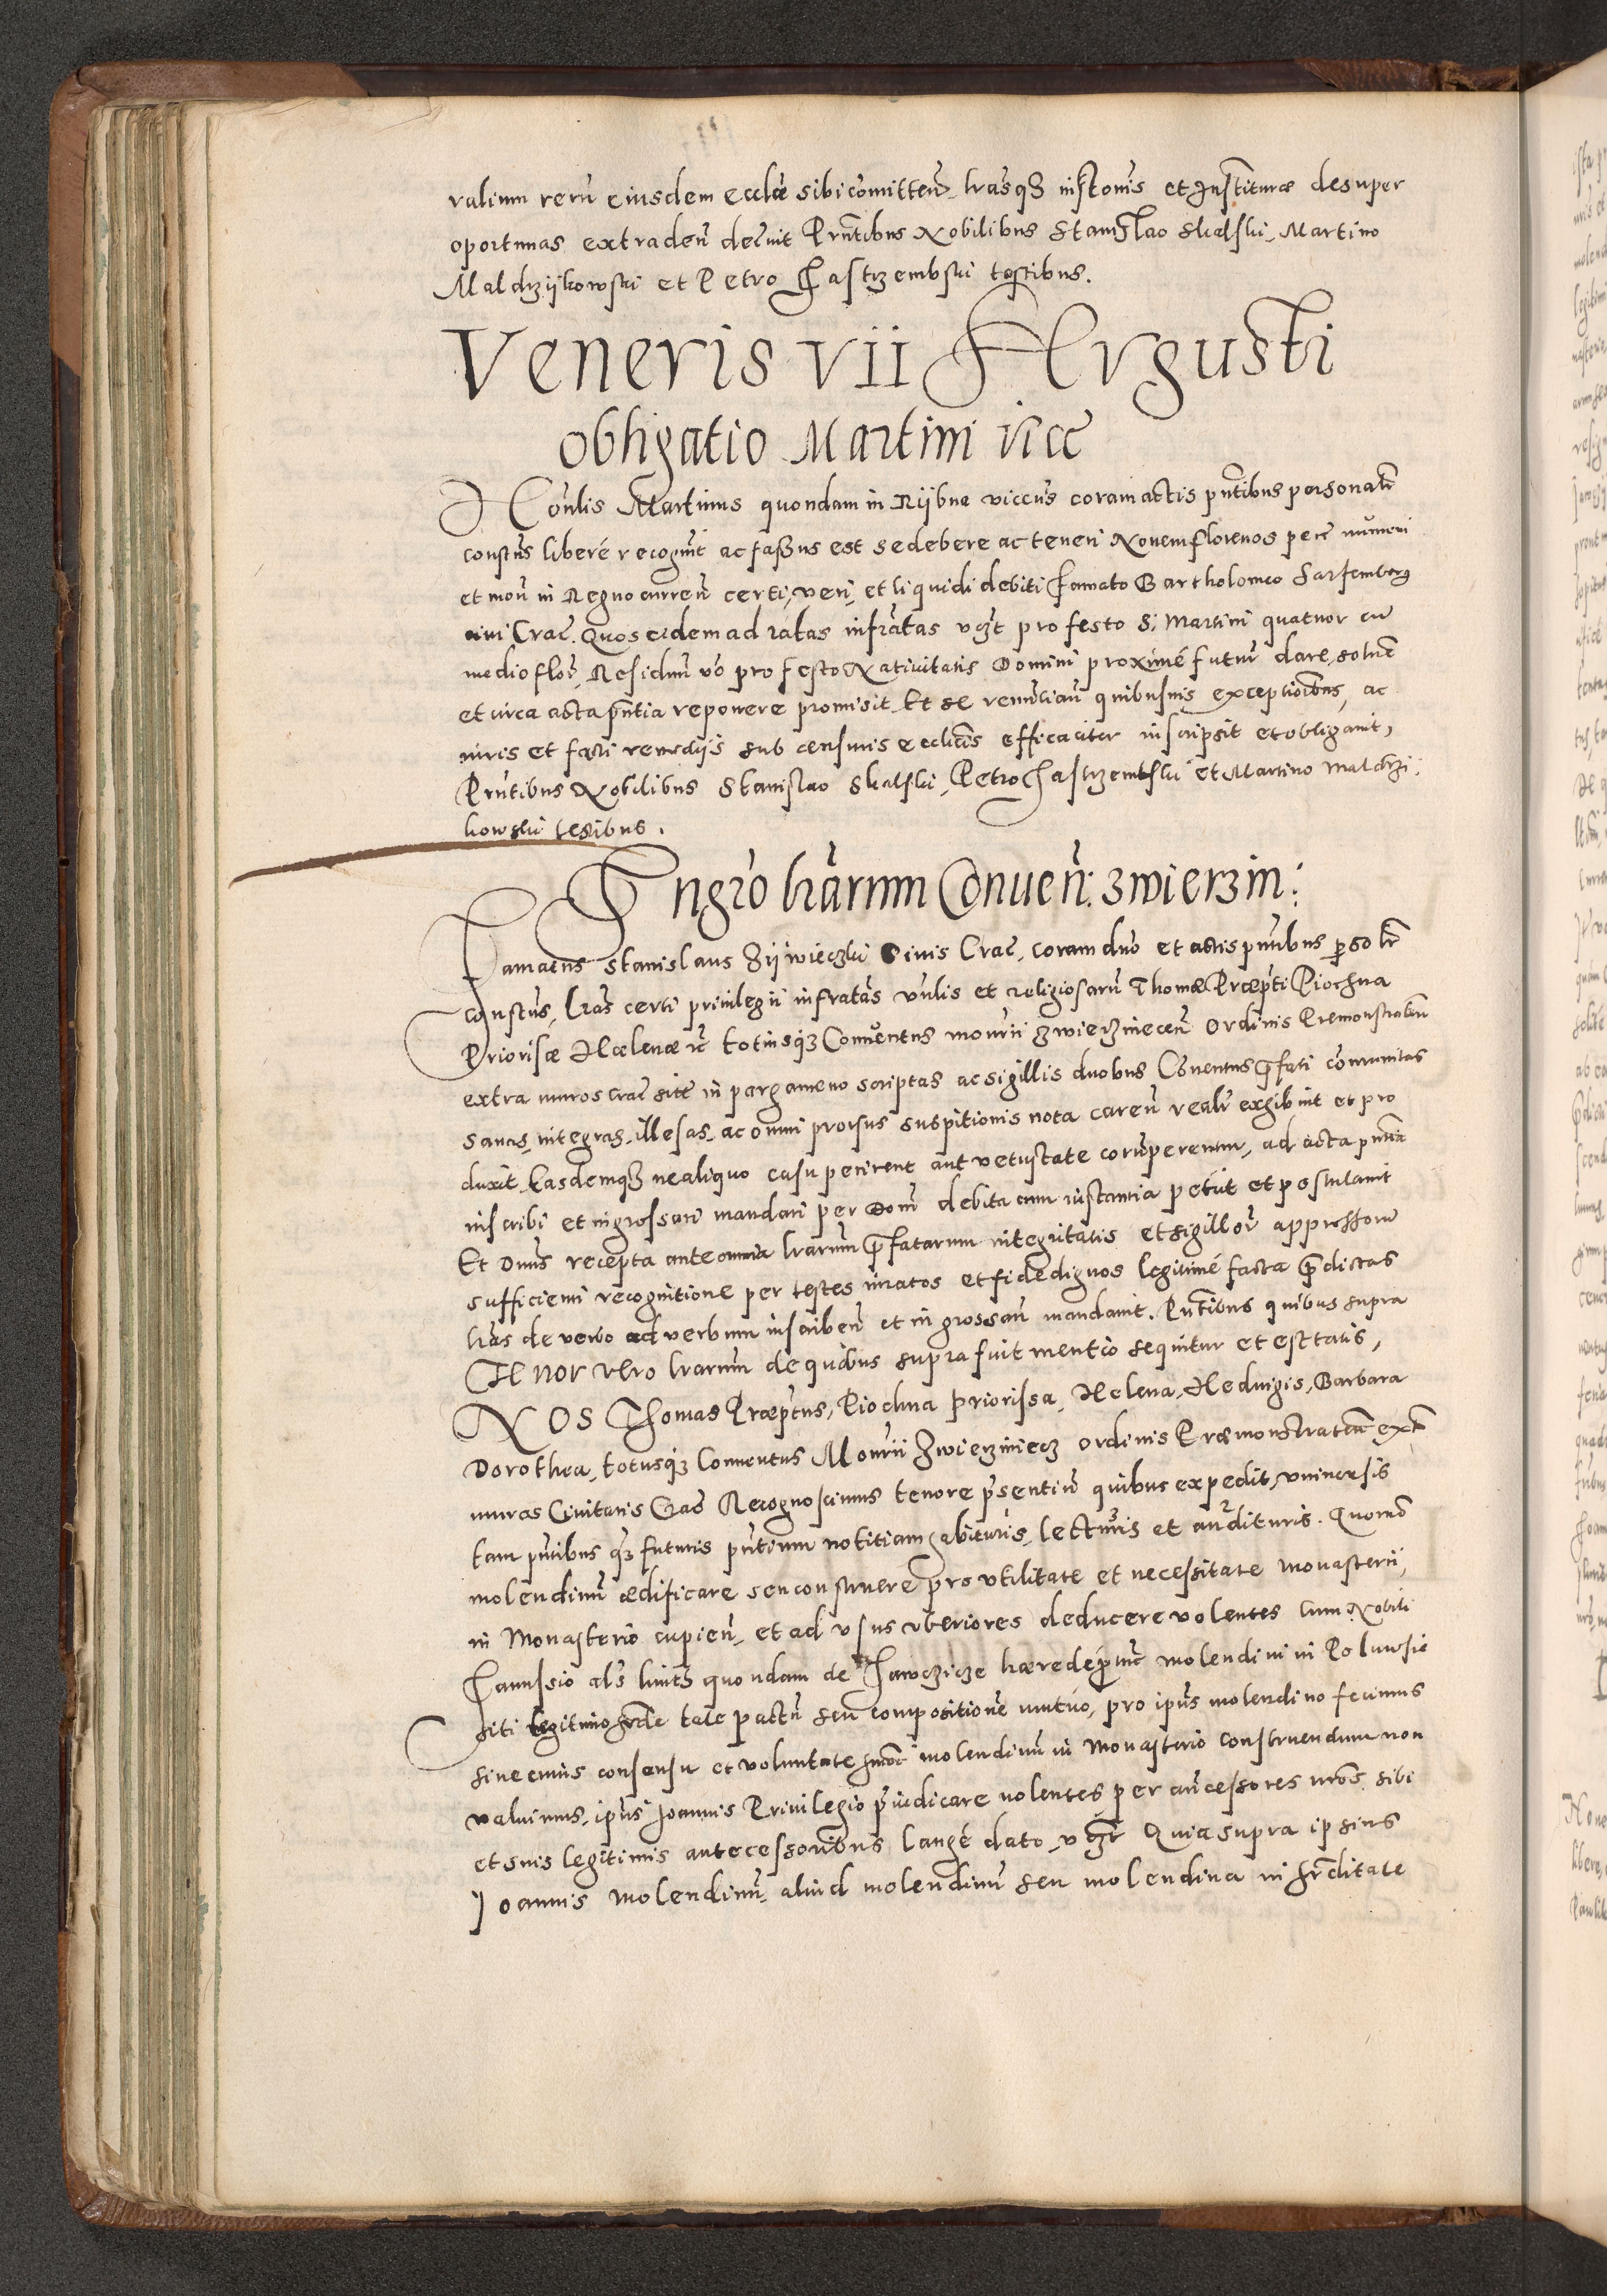 ralium reru͂ eiusdem eccl͂iæ sibi com̃itten͂. l͂rasq3 inst͂onis et Institutiõe desuper
oportunas extraden͂ decre͂uit Prn͂tibus Nobilibus Stanislao Skalski, Martino
Maldrzijkowski et Petro Jastrzembski testibus.
Veneris VII Augusti
Obligatio Martini
Hon͂lis Martinus quondam in Rijbna viceus coram actis pn͂tibus personal͂r
constus͂ liberé recognuit͂ ac faßus est se debere ac teneri Nouem florenos pecu͂ numeri
et mon͂ in Regno curren͂ certi, veri, et liquidi debiti famato Bartholomeo
ciui Crac͂. Quos eidem ad ratas infra͂tas v3t pro festo S. Martini quatuor cu͂
medio flor͂, Residuu͂ vo͂ pro festo Natiuitatis Domini proximé futur͂ dare, soluere͂
et circa acta pn͂tia reponere promisit. Et se renun͂tian͂ quibusuis exceptionibus͂, ac
iuris et facti remedijs sub censuris eccl͂icis efficaciter inscripsit et obligauit,
Prn͂tibus Nobilibus Stanislao Skalski, Petro Jastrzembski et Martino Maldrzi:
kowski testibus.
Ingro͂ l͂rarum Conuen͂: Zwierzin:
Famatus͂ Stanislaus Zijwieczki Ciuis Crac͂, coram dno͂ et actis pn͂tibus p͂sol͂r
constus͂, l͂ras certi priuilegii infratas͂ Vn͂lis et religiosaru͂ Thomæ Præp͂ti Piochna
Priorissæ Hælenæ et͂ totiusq3 Conuentus mon͂rii Zwierzinecen͂ Ordinis Premonstraten͂
extra muros Crac͂ site͂ in pargameno scriptas ac sigillis duobus Conuentus p͂fati com̃unitas
sanas, integras, illesas, ac omni prorsus suspitionis nota caren͂ real͂r exhibuit et pro
duxit. Easdemq3 ne aliquo casu perirent aut vetustate corru͂perentur, ad acta pn͂tia
inscribi et ingrossari mandari per Dom͂ debita cum instantia petiit et postulauit
Et Dnus͂ recepta ante omnia l͂rarum p͂fatarum integritatis et sigillor͂ appressoru͂
sufficienti recognitione per testes iuratos et fidedignos legitimé facta p͂dictas
l͂ras de verbo ad verbum inscriben͂ et ingrossan͂ mandauit. Pn͂tibus quibus supra
TENOR vero l͂rarum de quibus supra fuit mentio sequitur et est talis,
NOS Thomas Præp͂tus, Piochna priorissa, Helena, Heduigis, Barbara
Dorothea, totusq3 Conuentus Mon͂rii Zwierziniecz ordinis Præmonstraten͂ ext͂
muros Ciuitatis Crac͂ Recognoscimus tenore p͂sentiu͂ quibus expedit, vniuersis
tam pn͂tibus q͂3 futuris pn͂tium notitiam habituris, lecturis et audituris. Quomo͂
molendinu͂ ædificare seu construere pro vtilitate et necessitate monasterii,
in Monasterio cupien͂, et ad vsus vteriores deducere volentes cum Nobili
Janussio al͂s quondam de hærede p͂nūc molendini in Poluwsie
siti legitimo hrde͂ tale pactu͂ seu compositione͂ mutuo, pro ipius͂ molendino fecimus
sine cuius consensu et voluntate hmōi molendinu͂ in Monasterio construendum non
valuimus, ipius͂ Joannis Priuilegio p͂iudicare nolentes per ancessores͂ nros͂ sibi
et suis legitimis antecessoribus langé dato, v3t Quia supra ipsius
Joannis molendinu͂, aliud molendinu͂ seu molendina in hr͂ditate